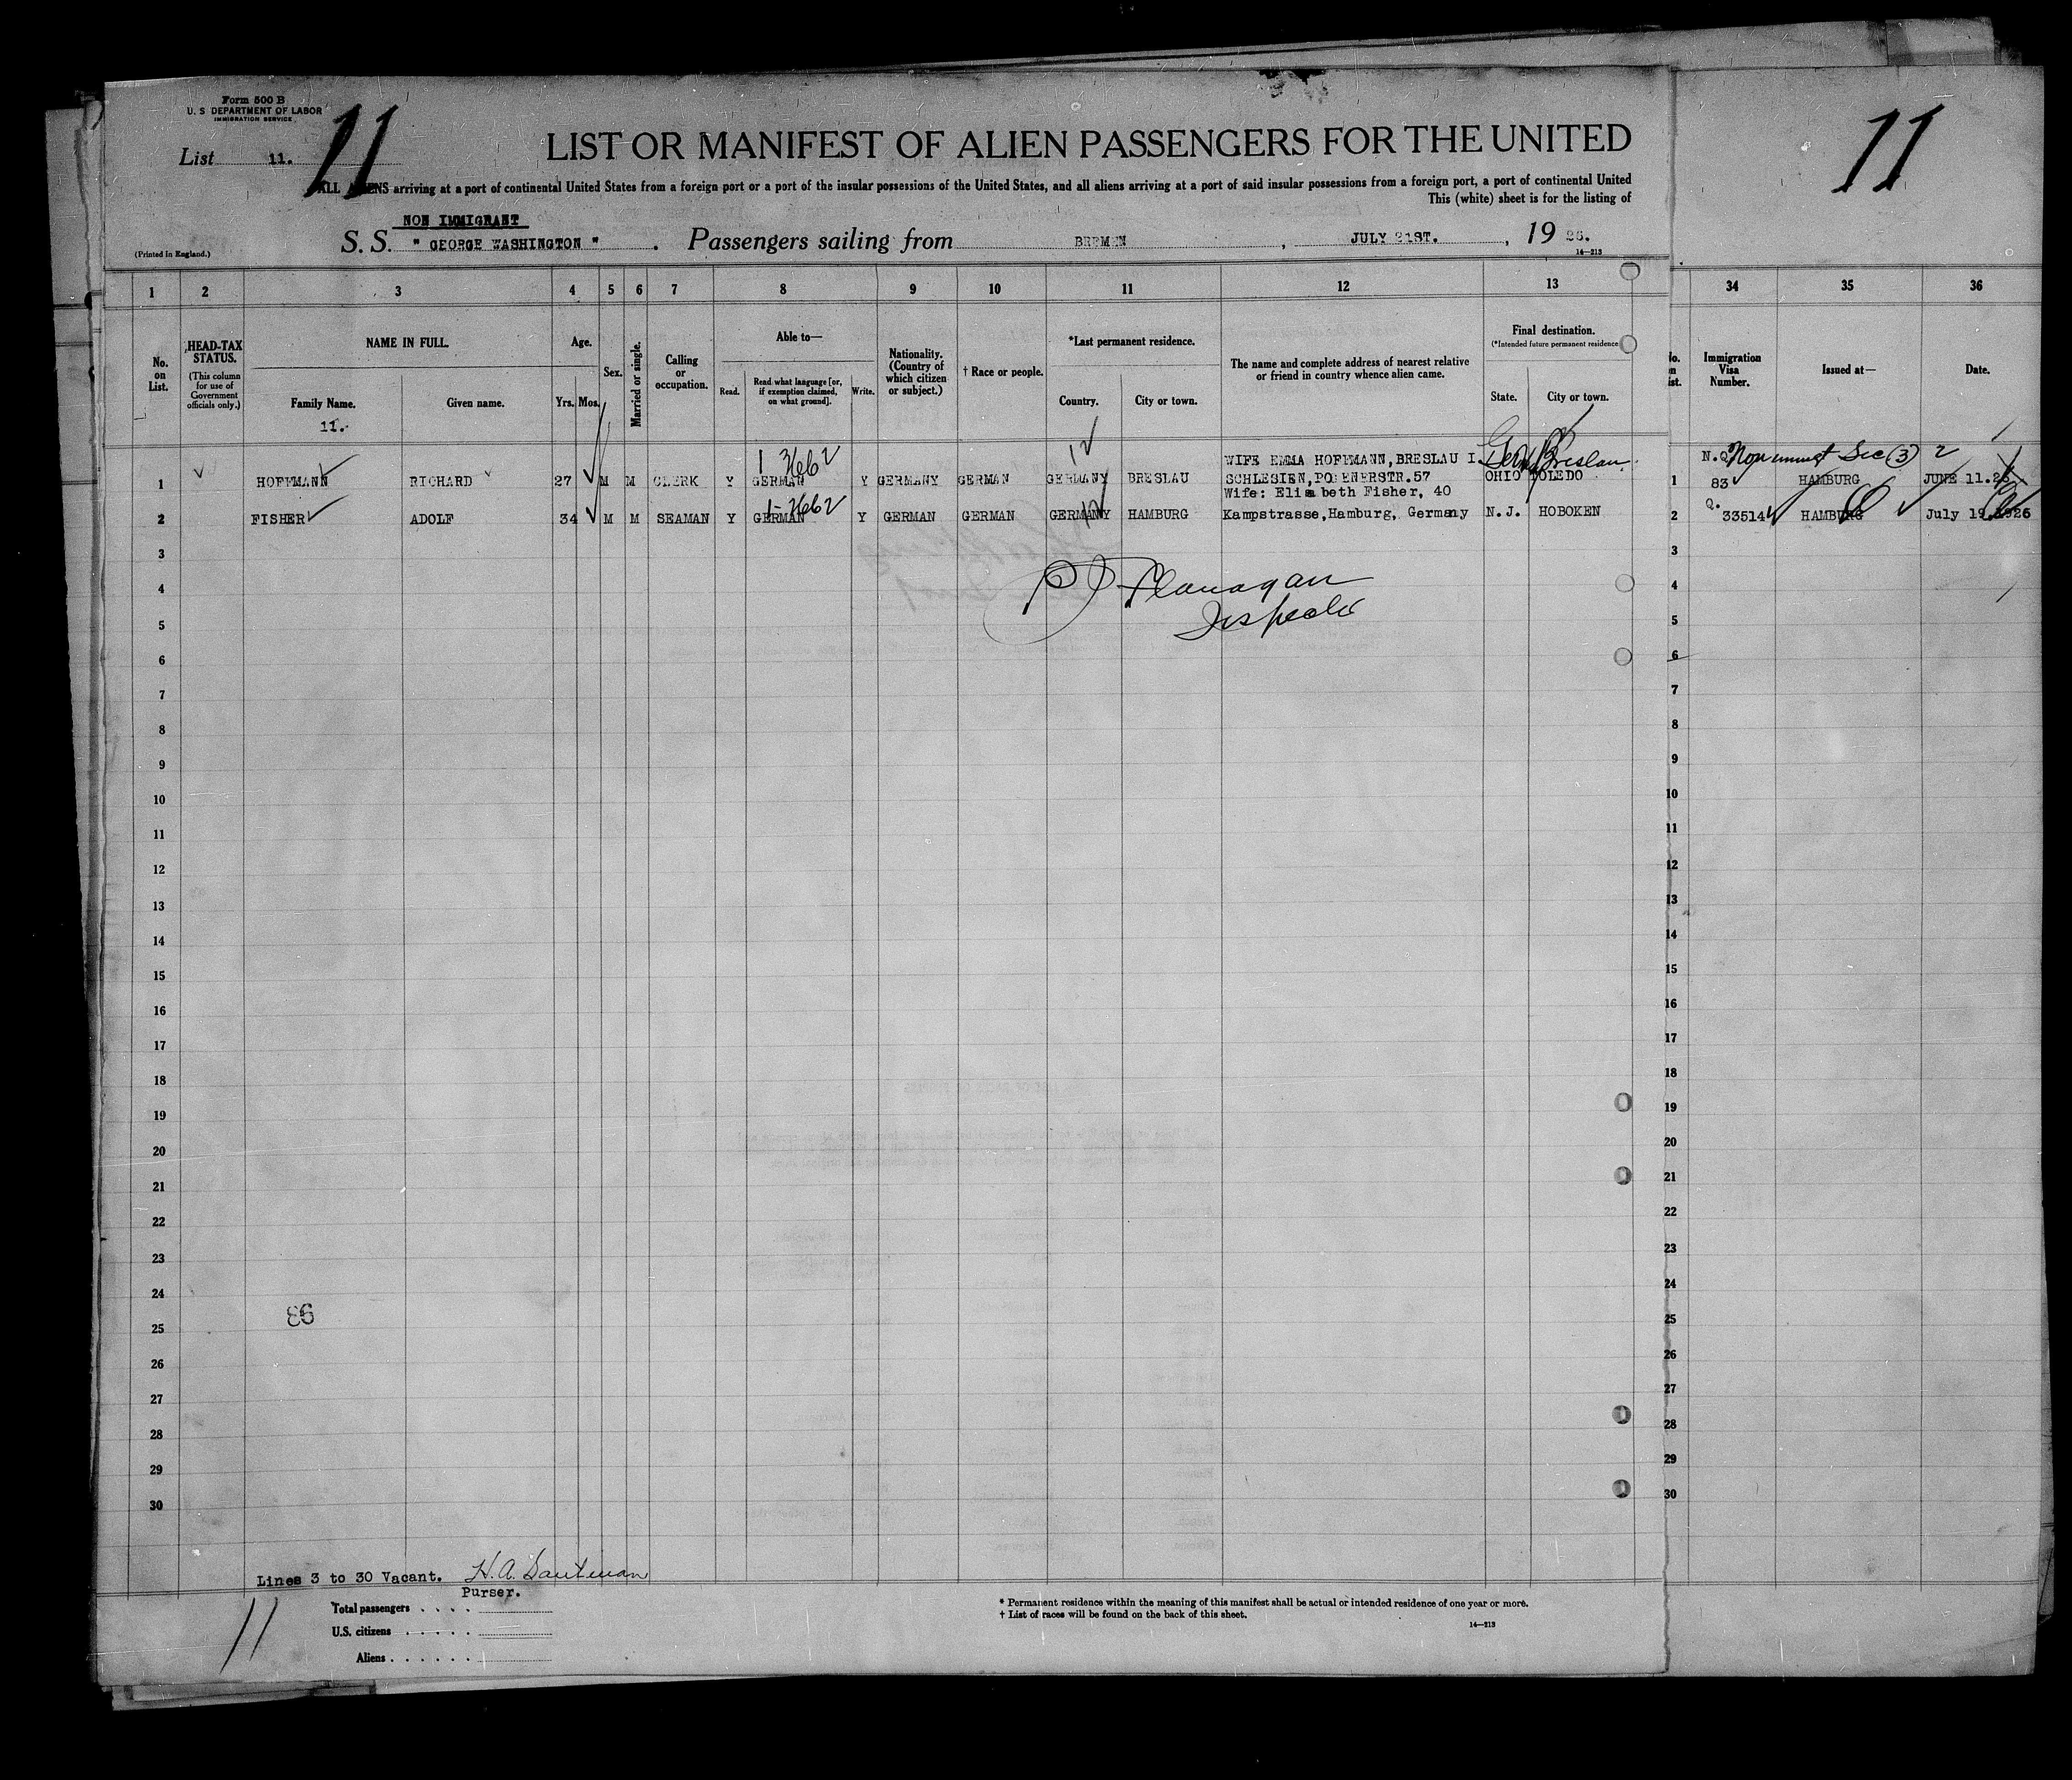 Form 500 B
U. S DEPARTMENT OF LABOR
IMMIGRATION SERVICE
List 11.
11
11
LIST OR MANIFEST OF ALIEN PASSENGERS FOR THE UNITED
ALL ALIENS arriving at a port of continental United States from a foreign port or a port of the insular possessions of the United States, and all aliens arriving at a port of said insular possessions from a foreign port, a port of continental United
This (white) sheet is for the listing of
NON IMMIGRANT
S. S. " GEORGE WASHINGTON " . Passengers sailing from BREMEN , JULY 21ST. , 19 26.
(Printed in England.)
14—213
1 2 3 4 5 6 7 8 9 10 11 12 13 34 35 36
No. on List.
HEAD-TAX STATUS.
(This column for use of Government officials only.)
NAME IN FULL.
Family Name.
Given name.
Age.
Yrs. Mos.
Sex.
Married or single.
Calling or occupation.
Able to—
Read.
Read what language [or, if exemption claimed, on what ground].
Write.
Nationality. (Country of which citizen or subject.)
† Race or people.
*Last permanent residence.
Country.
City or town.
The name and complete address of nearest relative or friend in country whence alien came.
Final destination.
(*Intended future permanent residence
State.
City or town.
No. on List.
Immigration Visa Number.
Issued at—
Date.
11.
WIFE EMMA HOFFMANN, BRESLAU I. Breslau. N.Q. Non immigt Sec (3) 2
1 HOFFMANN RICHARD 27 M M CLERK Y GERMAN Y GERMANY GERMAN GERMANY BRESLAU SCHLESIEN, POSENERSTR.57 OHIO TOLEDO 1 83 HAMBURG JUNE 11.26
Wife: Elisabeth Fisher, 40 Q.
2 FISHER ADOLF 34 M M SEAMAN Y GERMAN Y GERMAN GERMAN GERMANY HAMBURG Kampstrasse, Hamburg, Germany N.J. HOBOKEN 2 33514 HAMBURG July 19.1926
3 3
4 Flanagan 4
5 Inspector 5
6 6
7 7
8 8
9 9
10 10
11 11
12 12
13 13
14 14
15 15
16 16
17 17
18 18
19 19
20 20
21 21
22 22
23 23
24 24
86
25 25
26 26
27 27
28 28
29 29
30 30
Lines 3 to 30 Vacant. H.A.
Purser.
11
Total passengers . . . .
U.S. citizens . . . . . .
Aliens . . . . . .
* Permanent residence within the meaning of this manifest shall be actual or intended residence of one year or more.
† List of races will be found on the back of this sheet.
14—213